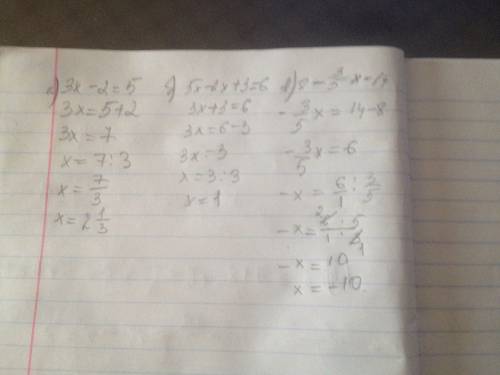 а) 3x - 2 = 5
3x = 5 + 2
3x = 7
x = 7 : 3
x = 7/3
x = 2 1/3
б) 5x - 2x + 3 = 6
3x + 3 = 6
3x = 6 - 3
3x = 3
x = 3 : 3
x = 1
в) 8 - 3/5 x = 14
- 3/5 x = 14 - 8
- 3/5 x = 6
- x = 6/1 : 3/5
- x = 2 6 · 5 / 1 · 3 1
- x = 10
x = -10